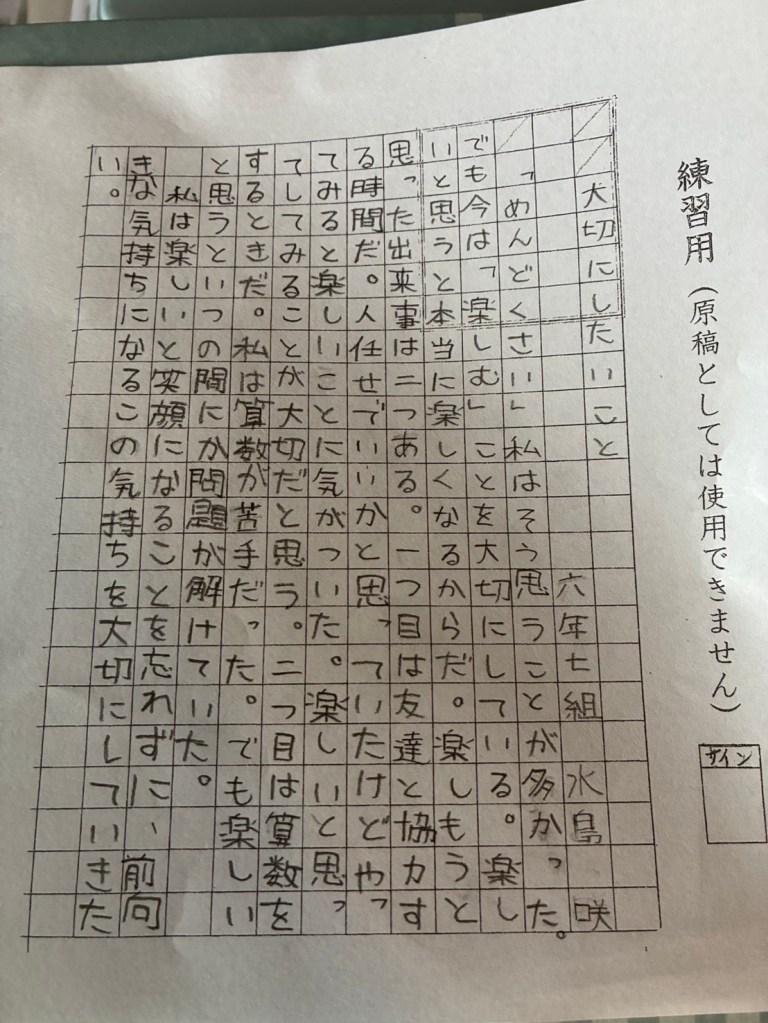 練習用（原稿としては使用できません）
サイン
大切にしたいこと
六年七組 水島 咲
「めんどくさい」私はそう思うことが多かった。
でも今は「楽しむ」ことを大切にしている。楽し
いと思うと本当に楽しくなるからだ。楽しもうと
思った出来事は二つある。一つ目は友達と協力す
る時間だ。人任せでいいかと思っていたけどやっ
てみると楽しいことに気がついた。楽しいと思っ
てしてみることが大切だと思う。二つ目は算数を
するときだ。私は算数が苦手だった。でも楽しい
と思うといつの間にか問題が解けていた。
私は楽しいと笑顔になることを忘れずに、前向
きな気持ちになるこの気持ちを大切にしていきた
い。